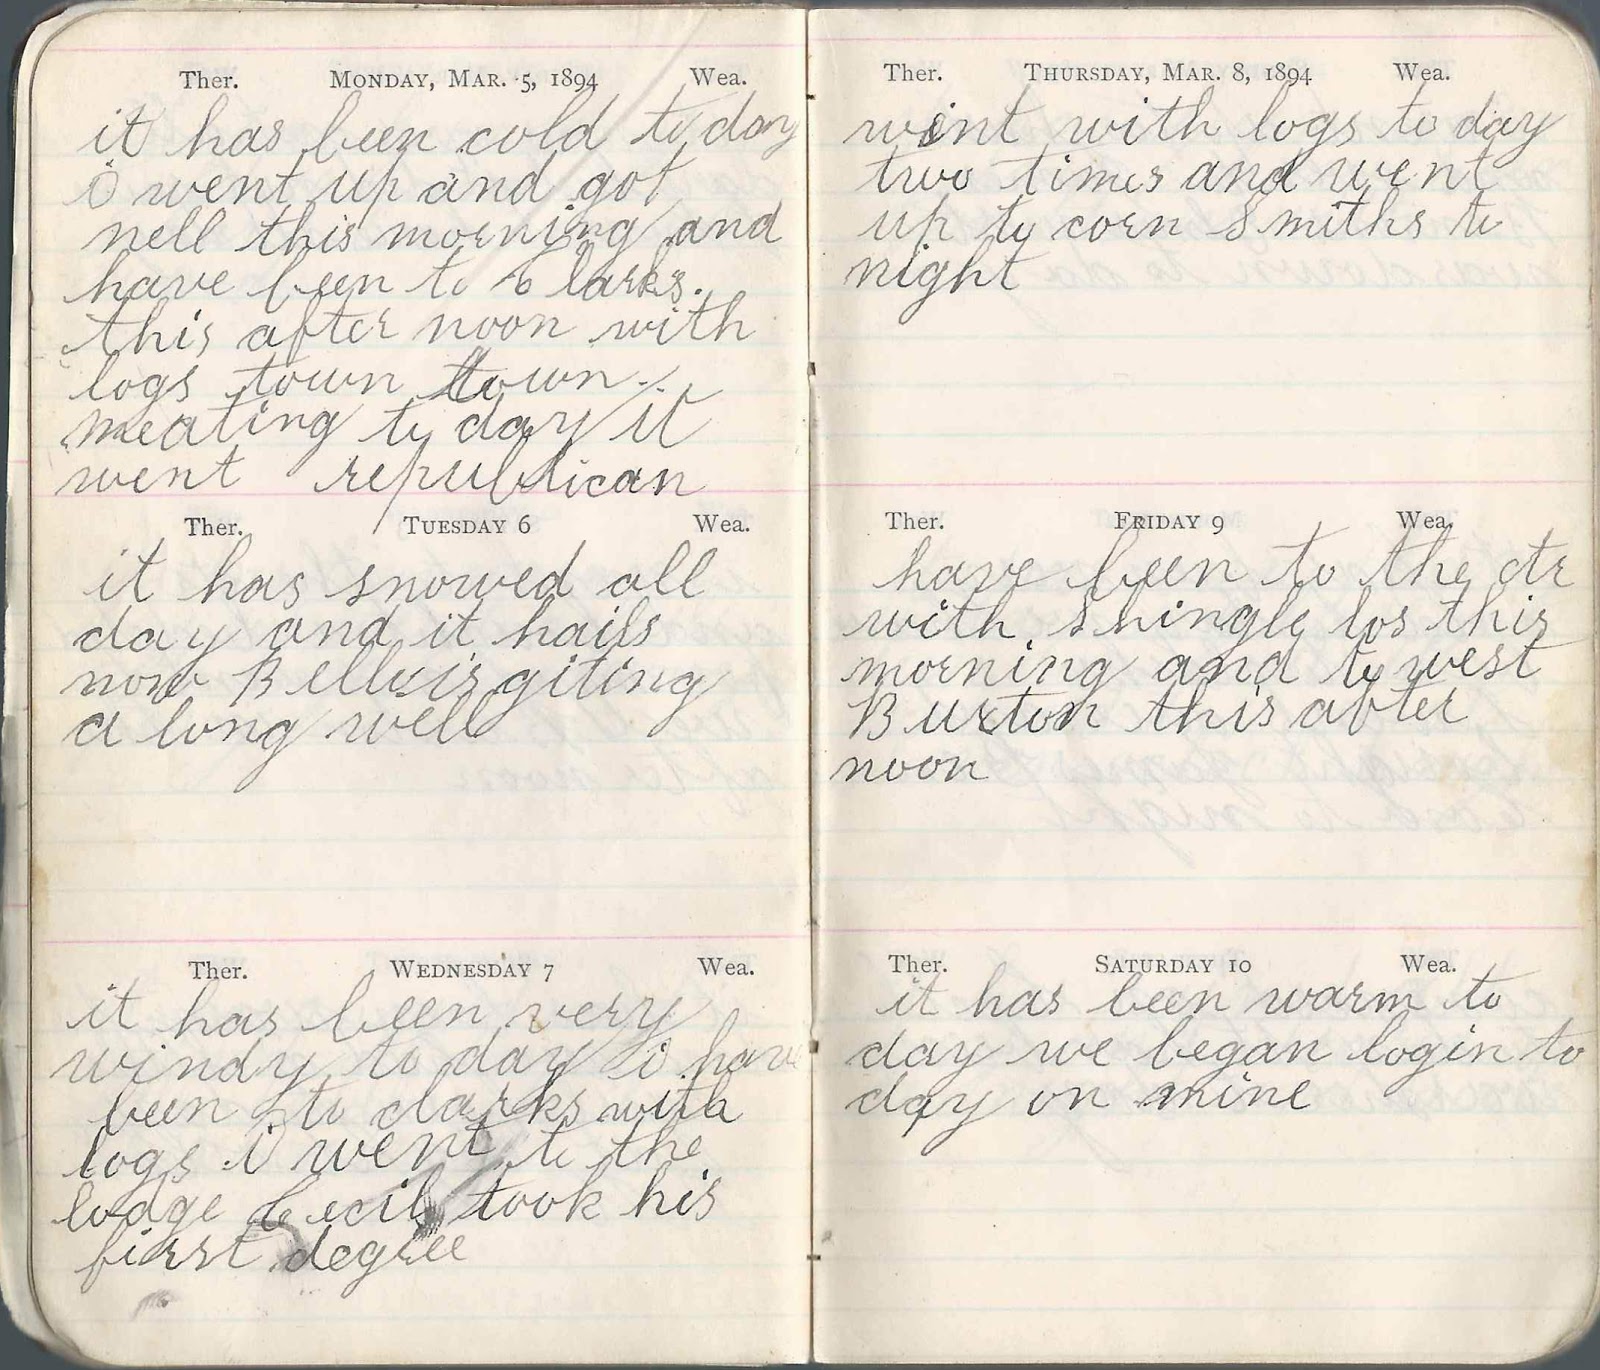 Ther. MONDAY, MAR. 5, 1894 Wea.
it has been cold to day
i went up and got
nell this morning and
have been to Clarks.
this after noon with
logs town town
meating to day it
went republican
Ther. TUESDAY 6 Wea.
it has snowed all
day and it hails
now Bell is giting
a long well
Ther. WEDNESDAY 7 Wea.
it has been very
windy to day i have
been to clarks with
logs i went to the
lodge Cecil took his
first degree
Ther. THURSDAY, MAR. 8, 1894 Wea.
went with logs to day
two times and went
up to corn Smiths to
night
Ther. FRIDAY 9 Wea.
have been to the
with Shingle los this
morning and to west
Buxton this after
noon
Ther. SATURDAY 10 Wea.
it has been warm to
day we began login to
day on mine